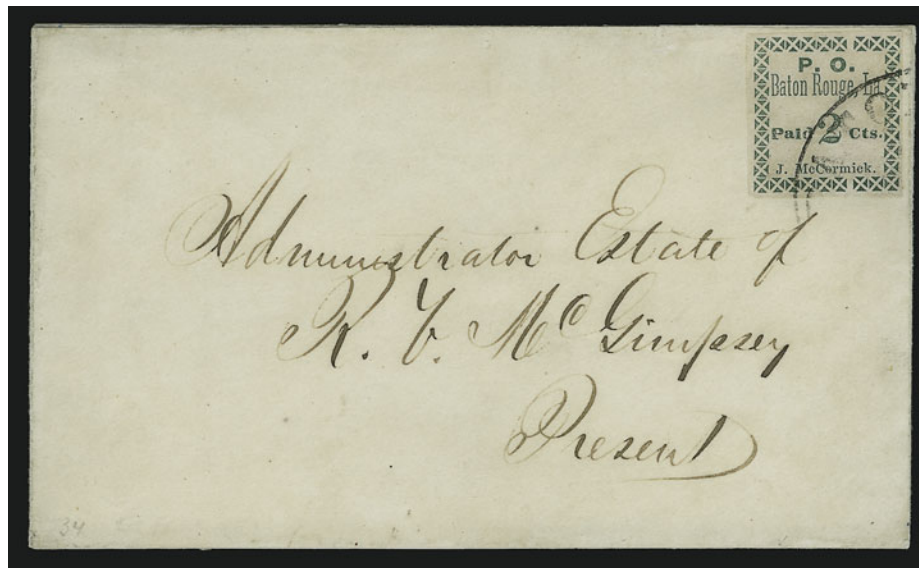 P. O.
Baton Rouge, La
Paid 2 Cts.
J. McCormick.
Administrator Estate of
R. V. McGimpsey
Present
34